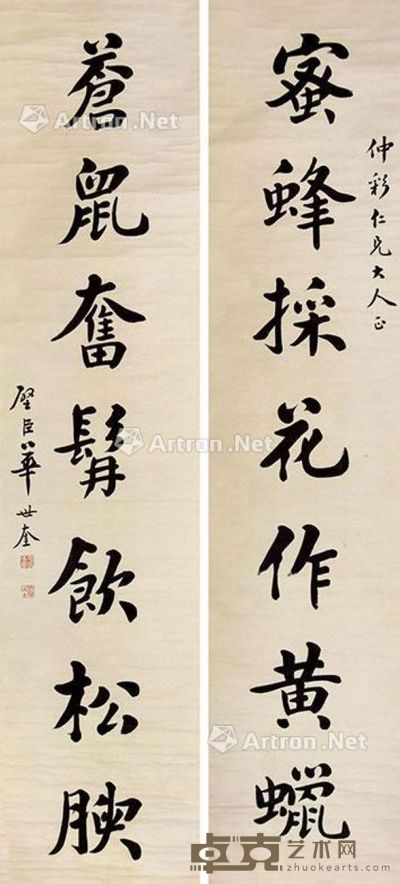 仲彩仁兄大人正
蜜蜂採花作黄蠟
蒼鼠奮髯飲松腴
璧臣華世奎
Artron.Net
Artron.Net
Artron.Net
Artron.Net
Artron.Net
卓克艺术网
zhuokearts.com